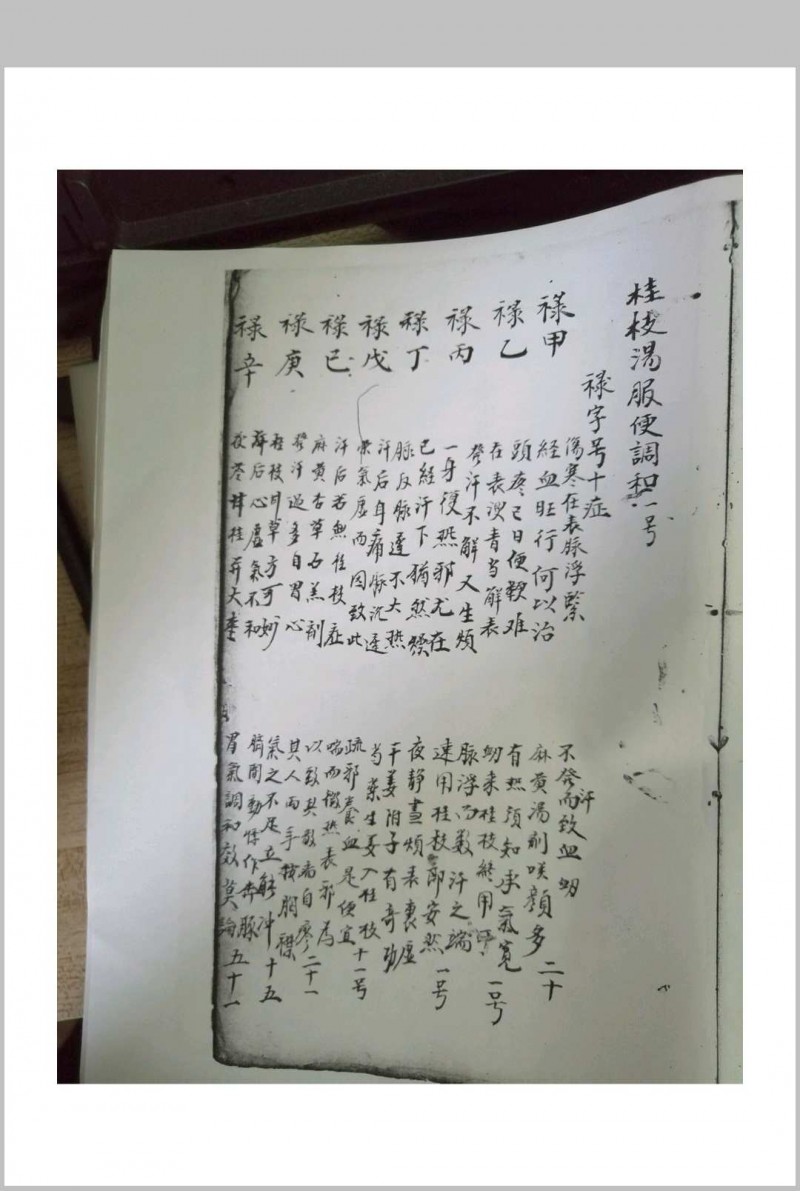 桂枝湯服便調和 一号
禄字号十症
禄甲
傷寒在表脈浮緊
不發汗而致血衂
経血旺行何以治
麻黄湯剤咲顔多 二十
禄乙
頭疼已日便軟难
有热須知承氣寛
在表溲青当解表
衂来桂枝終用 一号
禄丙
發汗不解又生煩
脉浮而数汗之端
一身復热邪尤在
速用桂枝即安然 一号
禄丁
已經汗下猶然
夜静晝煩表裏虚
脉反脉遲不大热
干姜附子有奇功
禄戊
汗后身痛脉沉遲
当薬生姜入桂枝
榮氣虚而因致此
疏邪養血是便宜 十一号
禄已
汗后若無桂枝症
喘而微热表邪為
麻黄杏草石羔剤
以致其散病自廖 二十一
禄庚
發汗過多自冒心
其人両手按胸襟
桂枝甘草方可妙
氣之不足立能冲 十五
禄辛
府后心虚氣不和
臍間動悸作奔豚
茯苓甘桂并大枣
胃氣調和效莫論 五十一